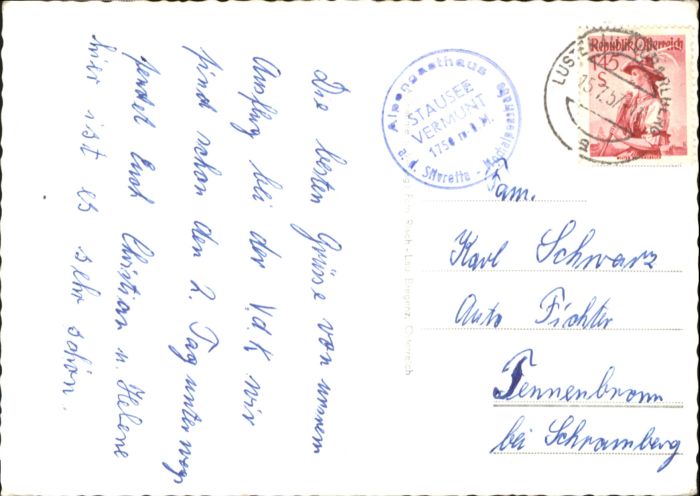 Die besten Grüsse von unserem
Ausflug bei der V.d.K wir
sind schon den 2. Tag unterwegs
sendet Euch Christian u. Helene
hier ist es sehr schön.
Alpengasthaus
STAUSEE
VERMUNT
1750 m ü. M.
a. d. Silvretta -
LUSTENAU
Republik Österreich
1.45
S
Fam.
Karl Schwarz
Auto Fichter
Tennenbronn
bei Schramberg
Risch-Lau, Bregenz, Österreich